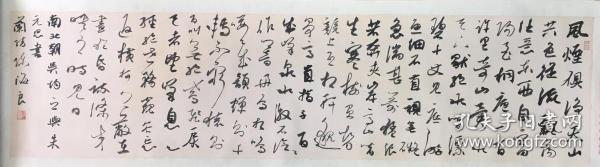 風煙俱淨天山
共色從流飄蕩
任意東西自富
陽至桐廬一百
許里奇山異水天
下獨絕水皆縹
碧千丈見底游
魚細石直視無礙
急湍甚箭猛浪
若奔夾岸高山皆
生寒樹負勢
競上互相軒邈
爭高直指千百
成峰泉水激石泠
泠作響好鳥相鳴
嚶嚶成韻蟬則千
轉不窮猿則
百叫無絕鳶飛戾
天者望峰息心
經綸世務者窺谷忘
返橫柯上蔽在
晝猶昏疏條交
映有時見日
南北朝吳均與朱
元思書
蘭陵陳海良